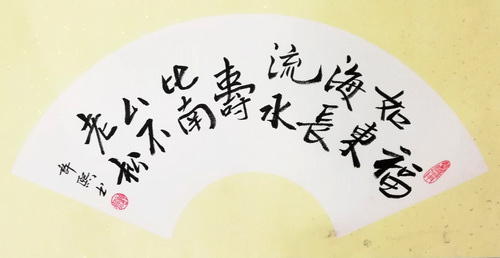 福
如東
海長
流水
壽
比南
山不
老松
熙书